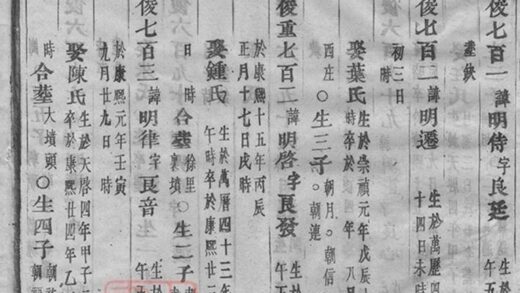 俊七百一 諱明侍字良廷 生於
俊七百二 諱明遷 生於萬歷四
十四日未時
初三日
時
娶葉氏 生於崇禎元年戊辰
時卒於 年 八月
西庄 ○生三子 朝月 朝信
朝連
俊重七百 諱明啓字良發 生於
於康熙十五年丙辰
正月十七日戌時
娶鍾氏 生於萬曆四十三年
午時卒於康熙廿二
日
時 合塟 徐里
襄墳 ○生二子
俊七百三 諱明律字良音 生於
於康熙元年壬寅
九月廿九日 時
娶陳氏 生於天啓四年甲子
卒於康熙廿四年乙
時 合塟大墳頭○生四子